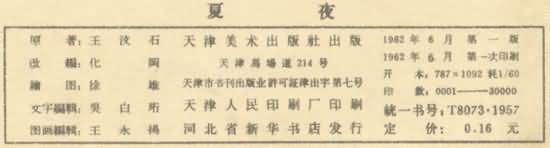 夏 夜
原 著：王 汶 石
改 编：化 冈
绘 图：徐 雄
文字編輯：吳 白 珩
图画編輯：王 永 揚
天 津 美 术 出 版 社 出 版
天 津 馬 場 道 214 号
天津市书刊出版业許可証津出字第七号
天 津 人 民 印 刷 厂 印 刷
河 北 省 新 华 书 店 发 行
1962 年 6 月 第 一 版
1962 年 6 月 第一次印刷
开 本：787×1092 耗1/60
印 数：0001——30000
統一书号：T8073·1957
定 价：0.16 元